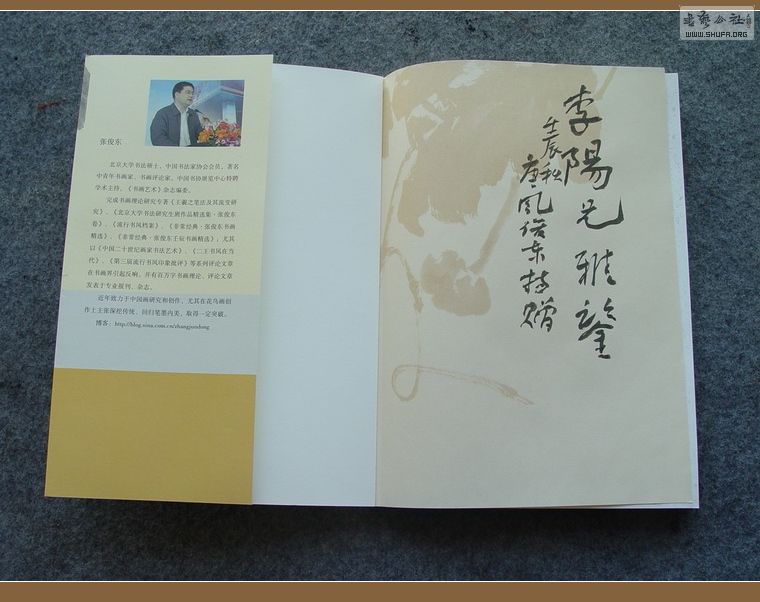 书艺公社
WWW.SHUFA.ORG
张俊东
北京大学书法硕士、中国书法家协会会员、著名
中青年书画家、书画评论家。中国书协展览中心特聘
学术主持、《书画艺术》杂志编委。
完成书画理论研究专著《王羲之笔法及其流变研
究》、《北京大学书法研究生班作品精选集·张俊东
卷》、《流行书风档案》、《非常经典·张俊东书画
精选》、《非常经典·张俊东壬辰书画精选》；尤其
以《中国二十世纪画家书法艺术》、《二王书风在当
代》、《第三届流行书风印象批评》等系列评论文章
在书画界引起反响。并有百万字书画理论、评论文章
发表于专业报刊、杂志。
近年致力于中国画研究和创作，尤其在花鸟画创
作上主张深挖传统、回归笔墨内美，取得一定突破。
博客：http://blog.sina.com.cn/zhangjundong
李陽兄雅鉴
壬辰秋
唐风俊东持赠